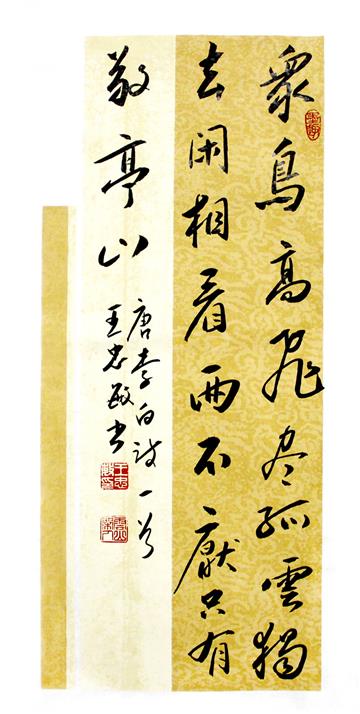 衆鳥高飛尽孤雲獨
去闲相看两不厭只有
敬亭山
唐李白詩一首
王忠敏书